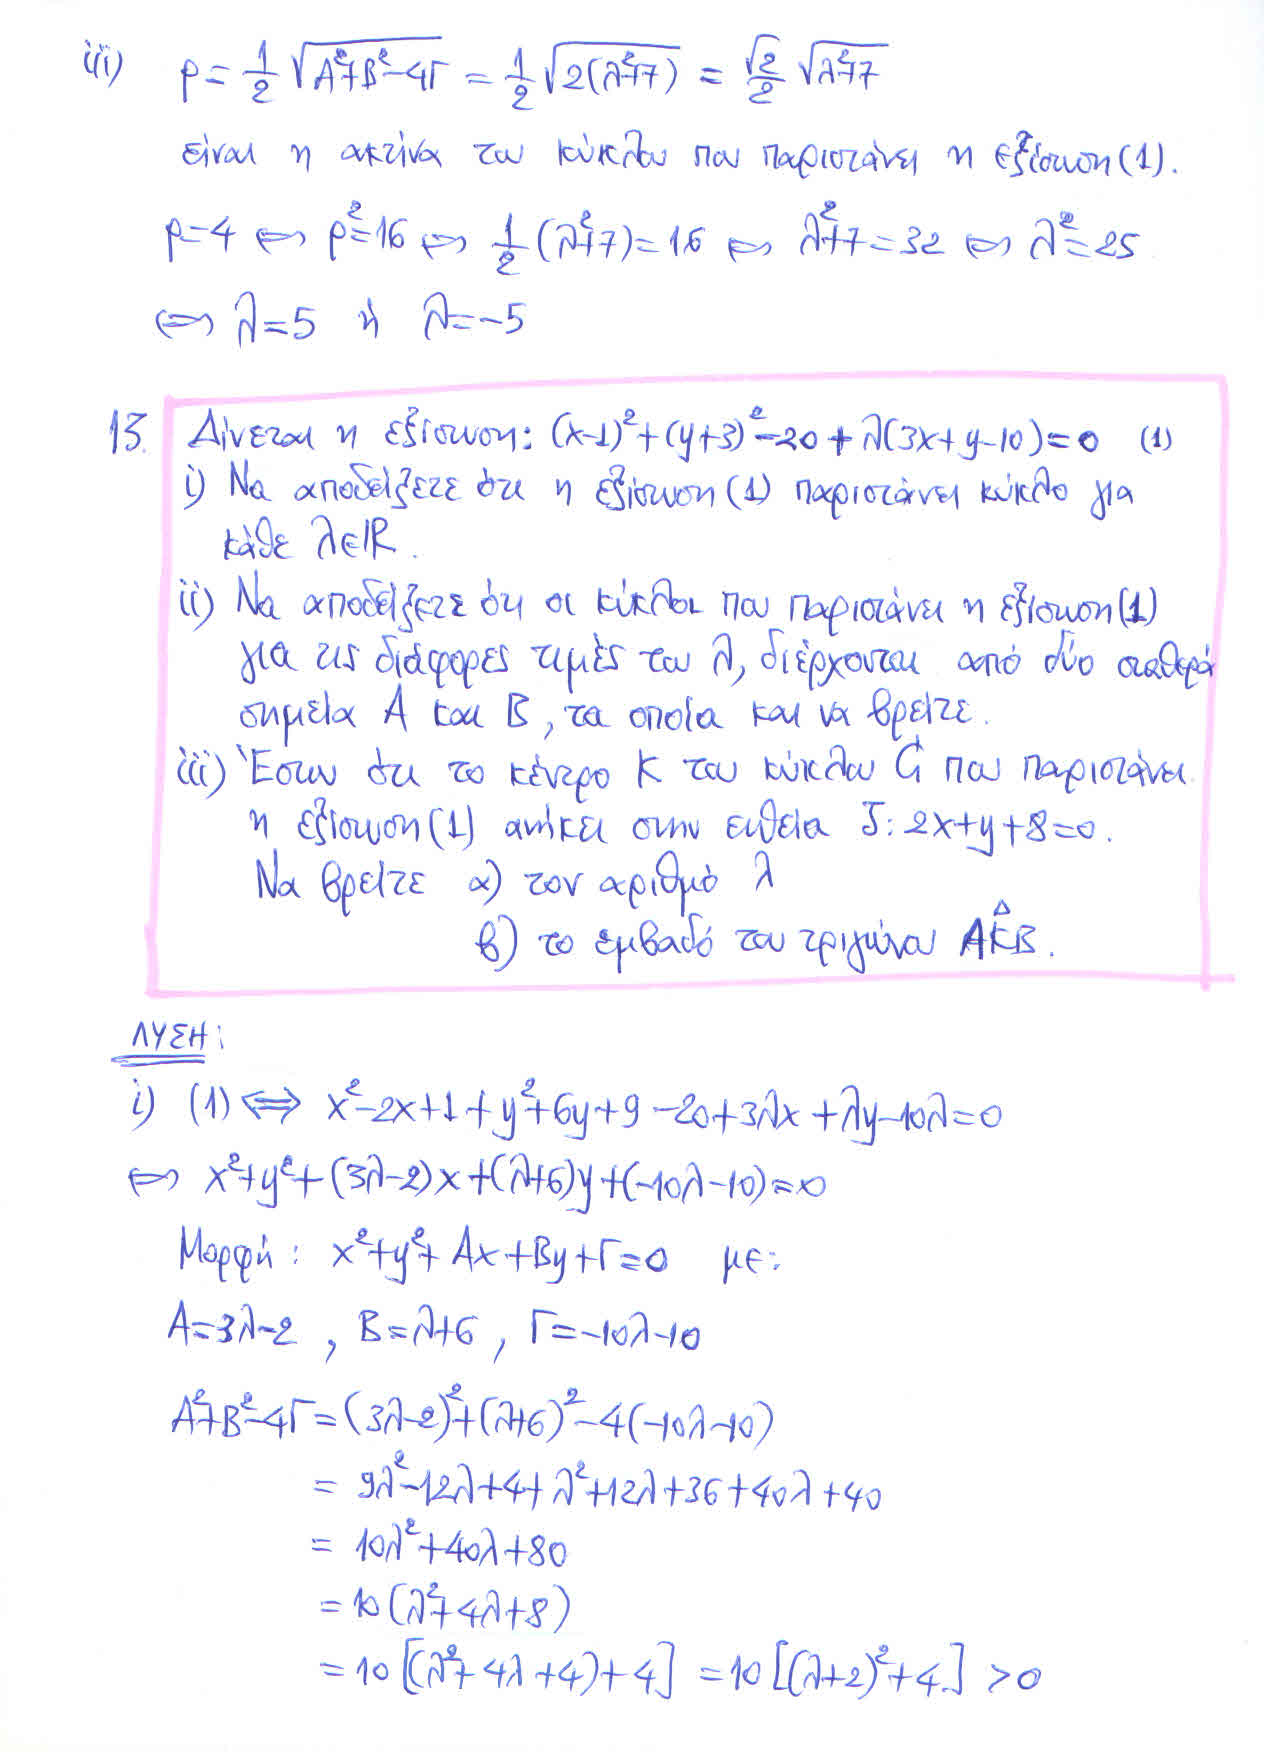 iii) ρ = 1/2 √(Α²+Β²-4Γ) = 1/2 √(2(λ²+7)) = √2/2 √(λ²+7)
είναι η ακτίνα του κύκλου που παριστάνει η εξίσωση (1).
ρ=4 ⇔ ρ²=16 ⇔ 1/2 (λ²+7)=16 ⇔ λ²+7=32 ⇔ λ²=25
⇔ λ=5 ή λ=-5
13. Δίνεται η εξίσωση: (x-1)²+(y+3)²-20+λ(3x+y-10)=0 (1)
i) Να αποδείξετε ότι η εξίσωση (1) παριστάνει κύκλο για
κάθε λ∈ℝ.
ii) Να αποδείξετε ότι οι κύκλοι που παριστάνει η εξίσωση (1)
για τις διάφορες τιμές του λ, διέρχονται από δύο σταθερά
σημεία Α και Β, τα οποία και να βρείτε.
iii) Έστω ότι το κέντρο Κ του κύκλου C που παριστάνει
η εξίσωση (1) ανήκει στην ευθεία ζ: 2x+y+8=0.
Να βρείτε α) τον αριθμό λ
β) το εμβαδό του τριγώνου ΑΚ̂Β.
ΛΥΣΗ:
i) (1) ⇔ x²-2x+1+y²+6y+9-20+3λx+λy-10λ=0
⇔ x²+y²+(3λ-2)x+(λ+6)y+(-10λ-10)=0
Μορφή: x²+y²+Αx+Βy+Γ=0 με:
Α=3λ-2, Β=λ+6, Γ=-10λ-10
Α²+Β²-4Γ=(3λ-2)²+(λ+6)²-4(-10λ-10)
= 9λ²-12λ+4+λ²+12λ+36+40λ+40
= 10λ²+40λ+80
= 10(λ²+4λ+8)
= 10[(λ²+4λ+4)+4] = 10[(λ+2)²+4] > 0